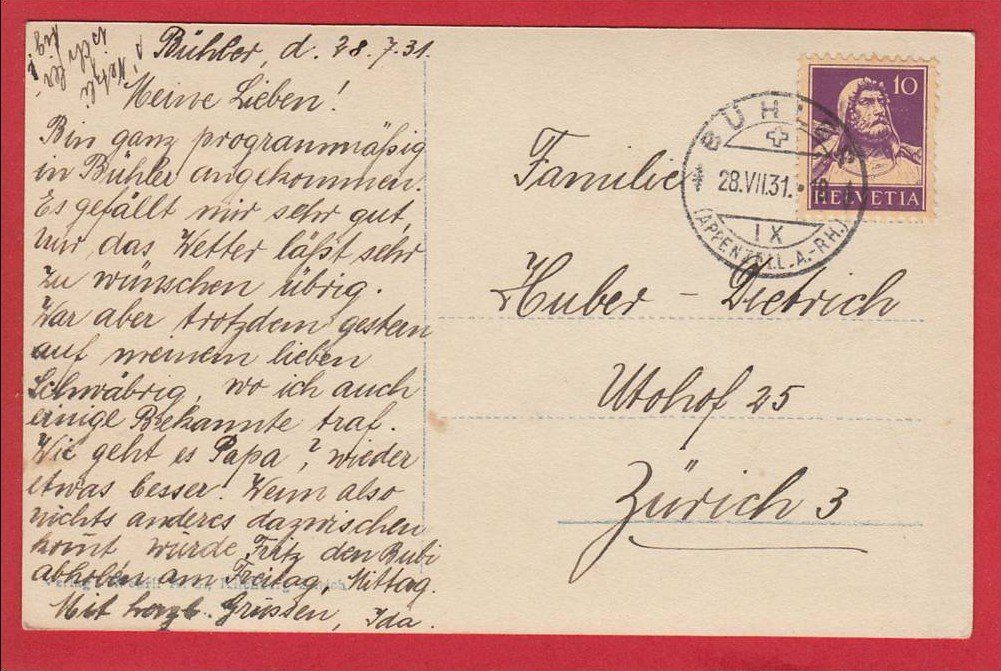 Bühler, d. 28.7.31.
Meine Lieben!
Bin ganz programmäßig
in Bühler angekommen.
Es gefällt mir sehr gut,
nur das Wetter läßt sehr
zu wünschen übrig.
War aber trotzdem gestern
auf meinem lieben
Schwäbrig, wo ich auch
einige Bekannte traf.
Wie geht es Papa, wieder
etwas besser? Wenn also
nichts anderes dazwischen
komt, würde Fritz den Bubi
abholen am Freitag, Mittag.
Mit herzl. Grüssen, Ida.
10
HELVETIA
BÜHLER
28.VII.31.
IX
(APPENZELL A.-RH.)
Familie
Huber - Dietrich
Utohof 25
Zürich 3